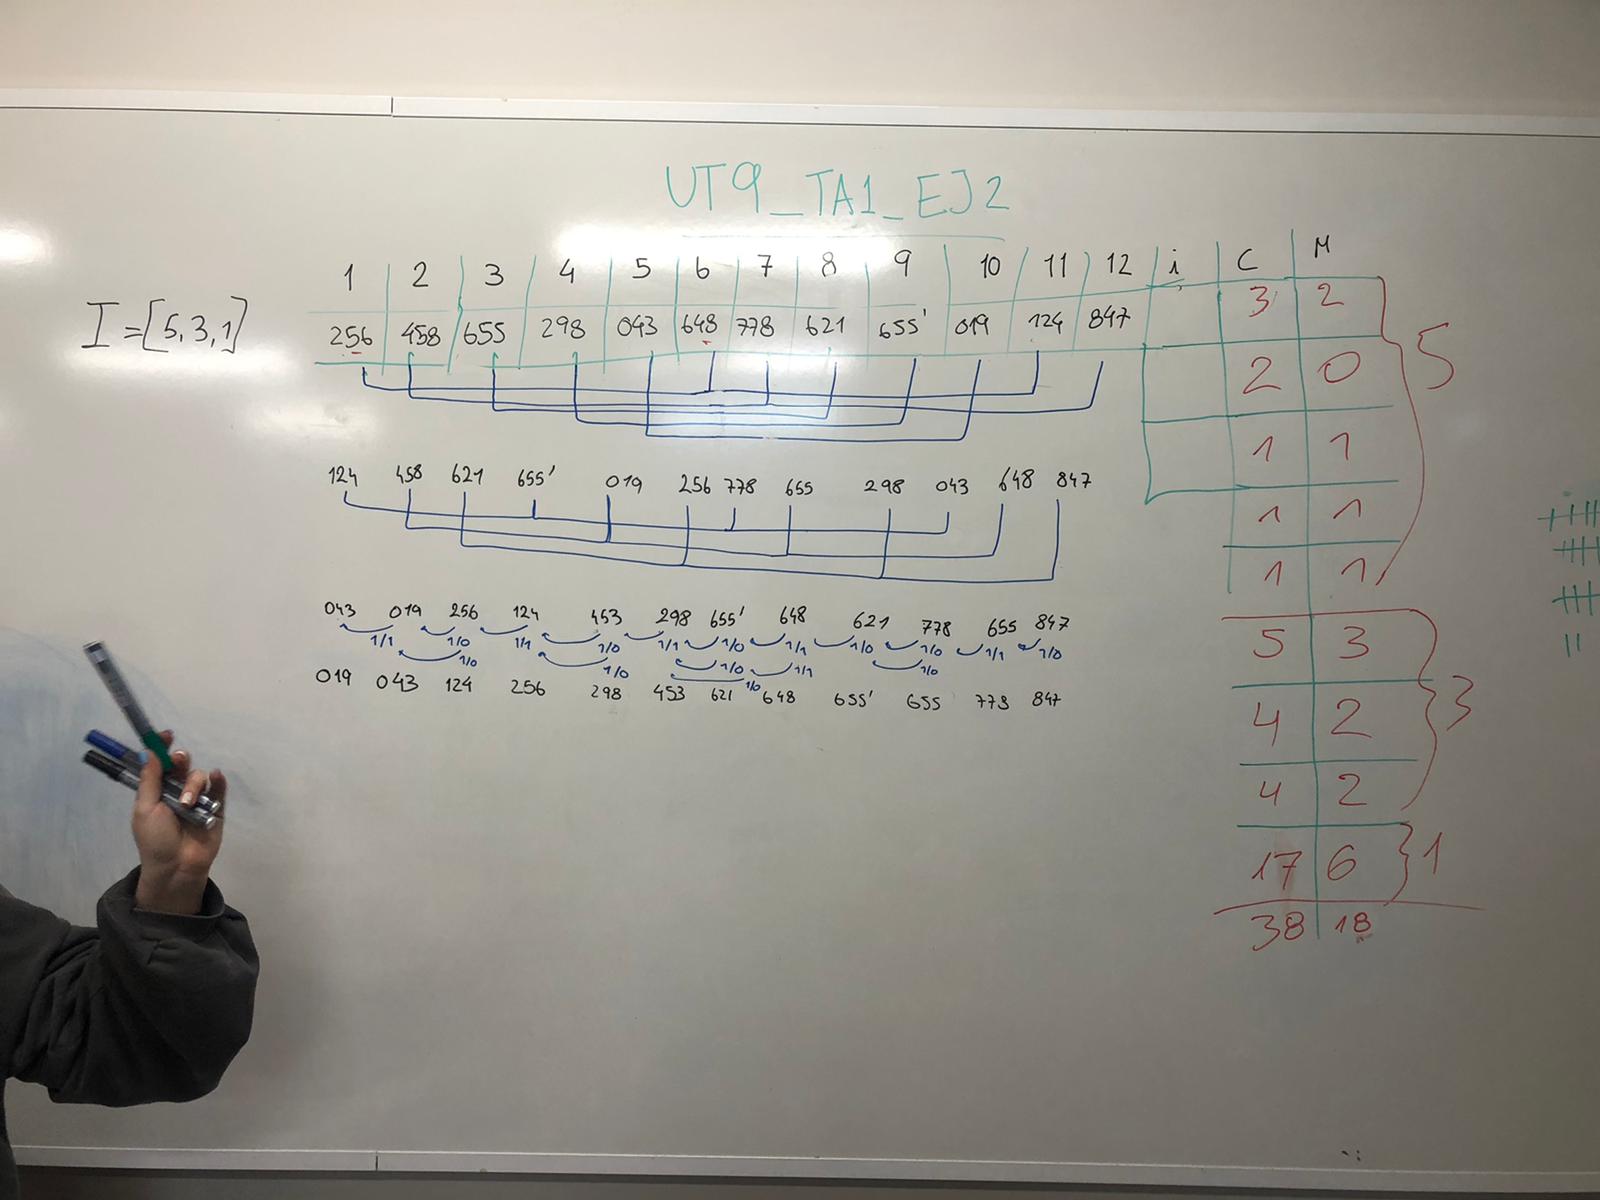 UT9_TA1_EJ2
1 2 3 4 5 6 7 8 9 10 11 12 i C M
I = [5, 3, 1]
256 458 655 298 043 648 778 621 655' 019 124 847
3 2
5
2 0
1 1
1 1
1 1
124 458 621 655' 019 256 778 655 298 043 648 847
043 019 256 124 453 298 655' 648 621 778 655 847
1/1 1/0 1/1 1/0 1/1 1/0 1/1 1/0 1/0 1/1 1/0
1/0 1/0 1/0 1/1 1/0
1/0
019 043 124 256 298 453 621 648 655' 655 773 847
5 3
3
4 2
4 2
17 6
1
38 18